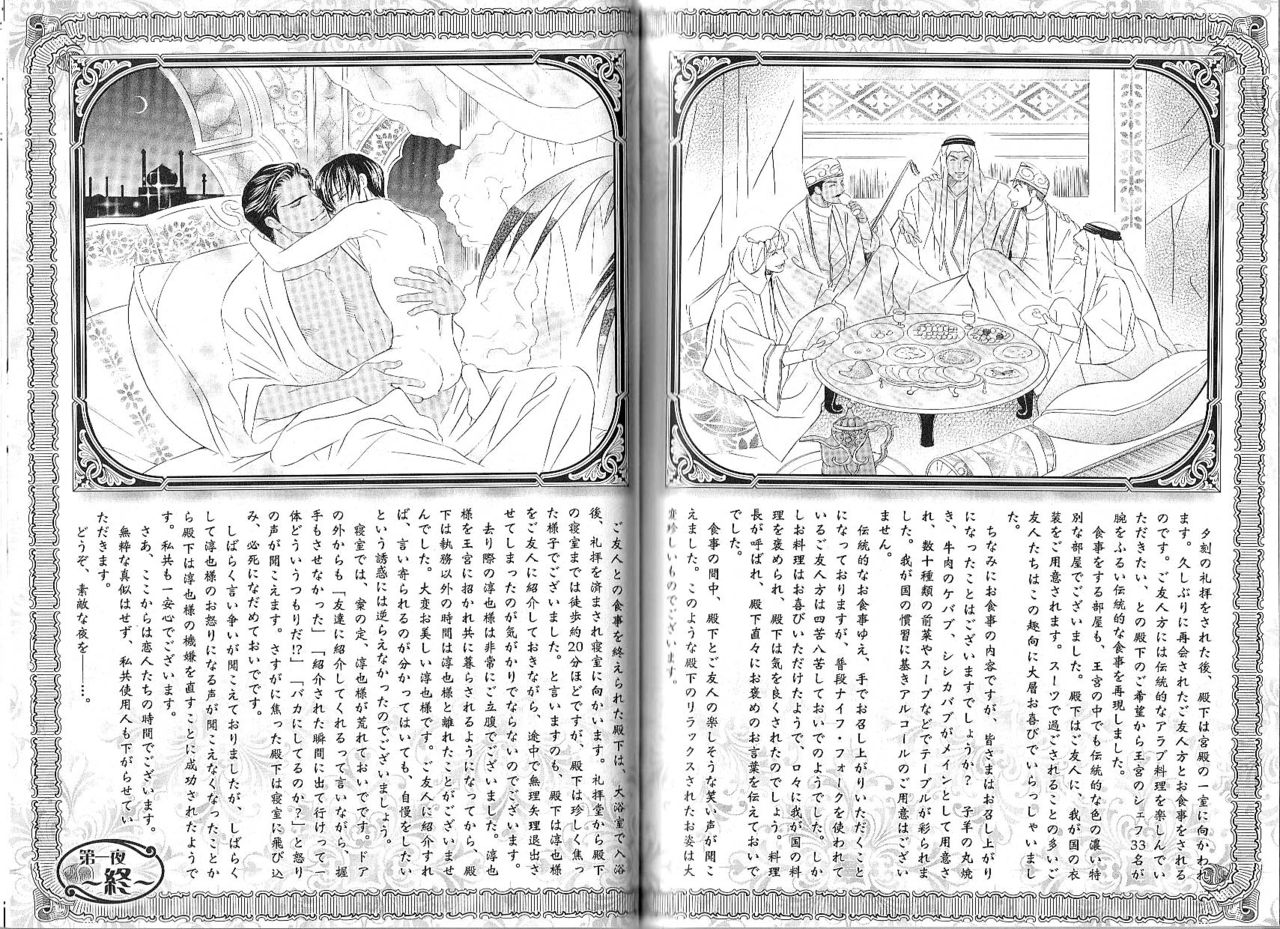 夕刻の礼拝をされた後、殿下は宮殿の一室に向かわれ
ます。久しぶりに再会されたご友人方とお食事をされる
のです。ご友人方には伝統的なアラブ料理を楽しんでい
ただきたい、との殿下のご希望から王宮のシェフ33名が
腕をふるい伝統的な食事を再現しました。
食事をする部屋も、王宮の中でも伝統的な色の濃い特
別な部屋でございました。殿下はご友人に、我が国の衣
装をご用意されます。スーツで過ごされることの多いご
友人たちはこの趣向に大層お喜びでいらっしゃいまし
た。
ちなみにお食事の内容ですが、皆さまはお召し上がり
になったことはございますでしょうか? 子羊の丸焼
き、牛肉のケバブ、シシカバブがメインとして用意さ
れ、数十種類の前菜やスープなどでテーブルが彩られま
した。我が国の慣習に基きアルコールのご用意はござい
ません。
伝統的なお食事ゆえ、手でお召し上がりいただくこと
になっておりますが、普段ナイフ・フォークを使われて
いるご友人方は四苦八苦しておいでのようでした。しか
しお料理はお喜びいただけたようで、口々に我が国の料
理を褒められ、殿下は気を良くされたのでしょう。料理
長が呼ばれ、殿下直々にお褒めのお言葉を伝えておいで
でした。
食事の間中、殿下とご友人の楽しそうな笑い声が聞こ
えました。このような殿下のリラックスされたお姿は大
変珍しいものでございます。
ご友人との食事を終えられた殿下は、大浴室で入浴
後、礼拝を済まされ寝室に向かいます。礼拝堂から殿下
の寝室までは徒歩約20分ほどですが、殿下は珍しく焦っ
た様子でございました。と言いますのも、殿下は淳也様
をご友人に紹介しておきながら、途中で無理矢理退出さ
せてしまったのが気がかりでならないのでございます。
去り際の淳也様は非常にご立腹でございました。淳也
様を王宮に招かれ共に暮らされるようになってから、殿
下は執務以外の時間は淳也様と離れたことがございませ
んでした。大変お美しい淳也様です。ご友人に紹介すれ
ば、言い寄られるのが分かってはいても、自慢をしたい
という誘惑には逆らえなかったのでございましょう。
寝室では、案の定、淳也様が荒れておいでです。ドア
の外からも「友達に紹介してくれるって言いながら、握
手もさせなかった」「紹介された瞬間に出て行けって一
体どういうつもりだ!?」「バカにしてるのか?」と怒り
の声が聞こえます。さすがに焦った殿下は寝室に飛び込
み、必死になだめておいでです。
しばらく言い争いが聞こえておりましたが、しばらく
して淳也様のお怒りになる声が聞こえなくなったことか
ら殿下は淳也様の機嫌を直すことに成功されたようで
す。私共も一安心でございます。
さあ、ここからは恋人たちの時間でございます。
無粋な真似はせず、私共使用人も下がらせてい
ただきます。
どうぞ、素敵な夜を――…。
第一夜
〜終〜